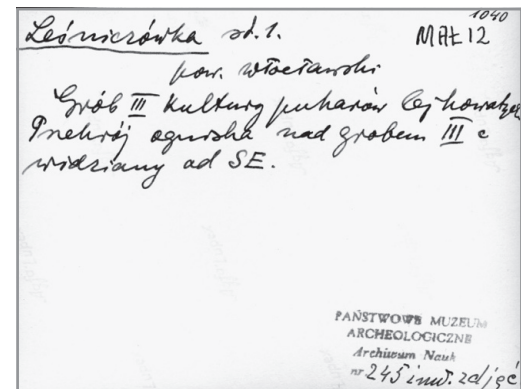 1040
Leśniczówka st. 1.
MAŁ 12
pow. włocławski
Grób III kultury puharów lejkowatych
Przekrój ogniska nad grobem III c
widziany od SE.
PAŃSTWOWE MUZEUM
ARCHEOLOGICZNE
Archiwum Nauk
nr 245 inw. zdjęć